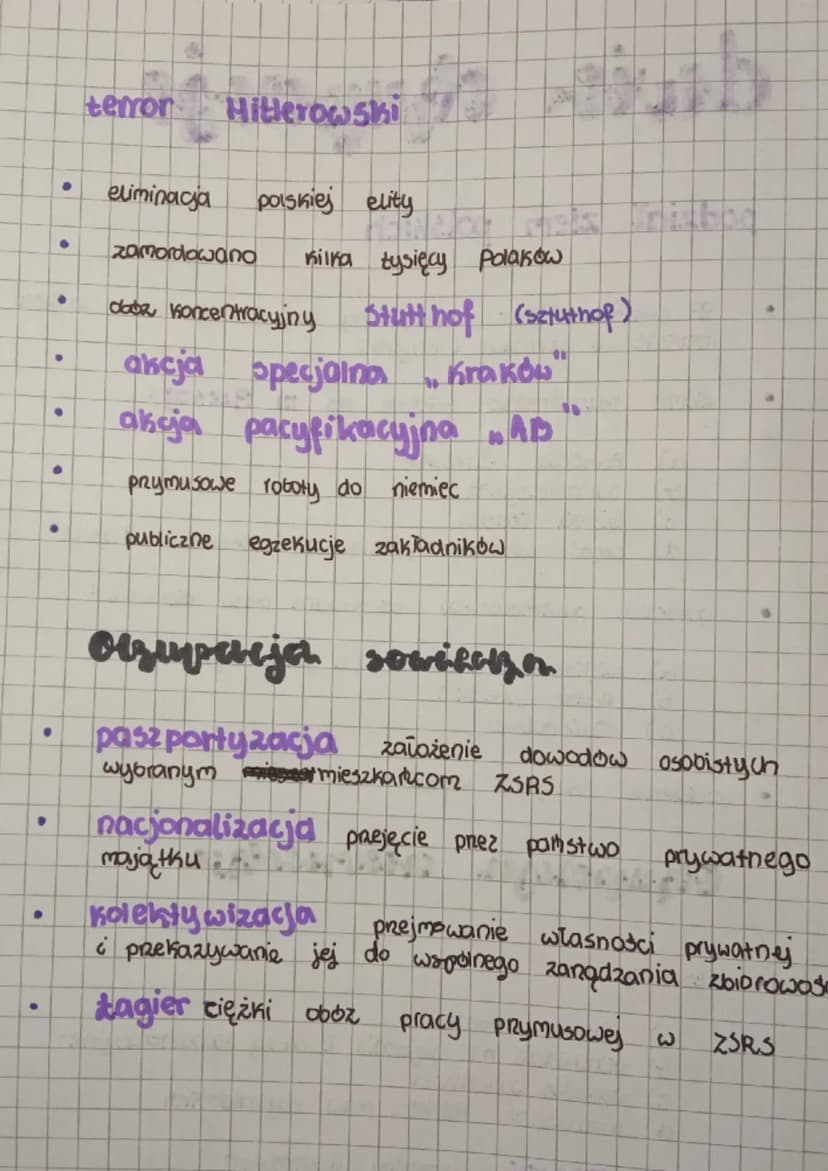 terror Hitlerowski
• eliminacja polskiej elity
• zamordowano kilka tysięcy Polaków
• obóz koncentracyjny Stutthof (sztuthof)
• akcja specjalna „Kraków"
• akcja pacyfikacyjna „AB"
• przymusowe roboty do niemiec
• publiczne egzekucje zakładników
Okupacja sowiecka
• paszportyzacja założenie dowodów osobistych
wybranym mieszkańcom ZSRS
• nacjonalizacja przejęcie przez państwo prywatnego
majątku
• kolektywizacja przejmowanie własności prywatnej
i przekazywanie jej do wspólnego zarządzania
• Łagier ciężki obóz pracy przymusowej w ZSRS